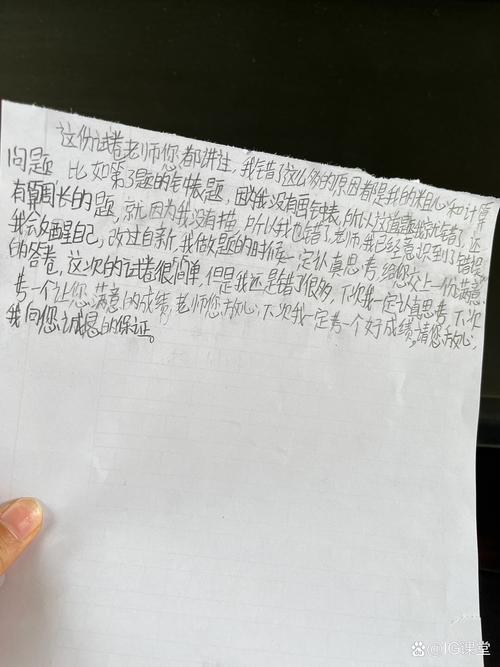 这份试卷老师您都讲过,我错了这么多的原因都是我的粗心和计算
问题 比如第3题的钟表题,因为我没有画钟表,所以这道题我就错了,还
有算周长的题,就因为我没有描,所以我也错了,老师,我已经意识到了错误,
我会多醒自己,改过自新,我做题的时候一定认真思考,给您交上一份满意
的答卷,这次的试卷很简单,但是我还是错了很多,下次我一定认真思考,下次
考一个让您满意的成绩,老师您放心,下次我一定考一个好成绩,请您放心,
我向您诚恳的保证。
@IG课堂